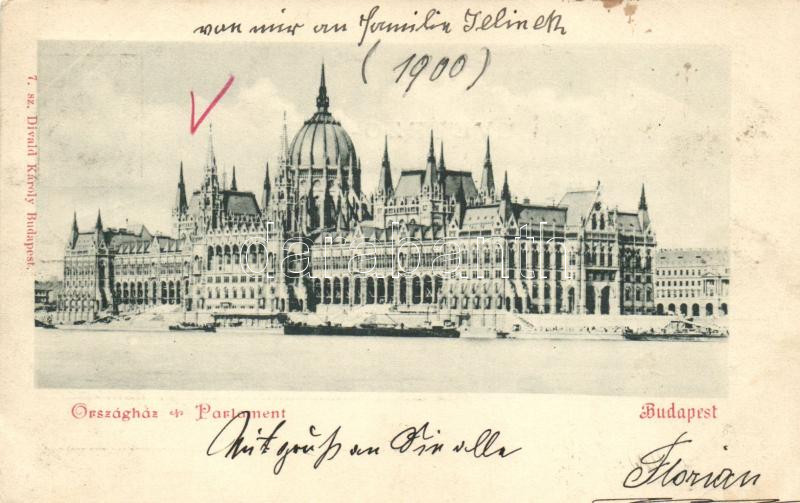 von mir an Familie Jelinek
(1900)
7. sz. Divald Károly Budapest.
darabanth
Országház Parlament
Budapest
Mit gruß an Sie alle
Florian